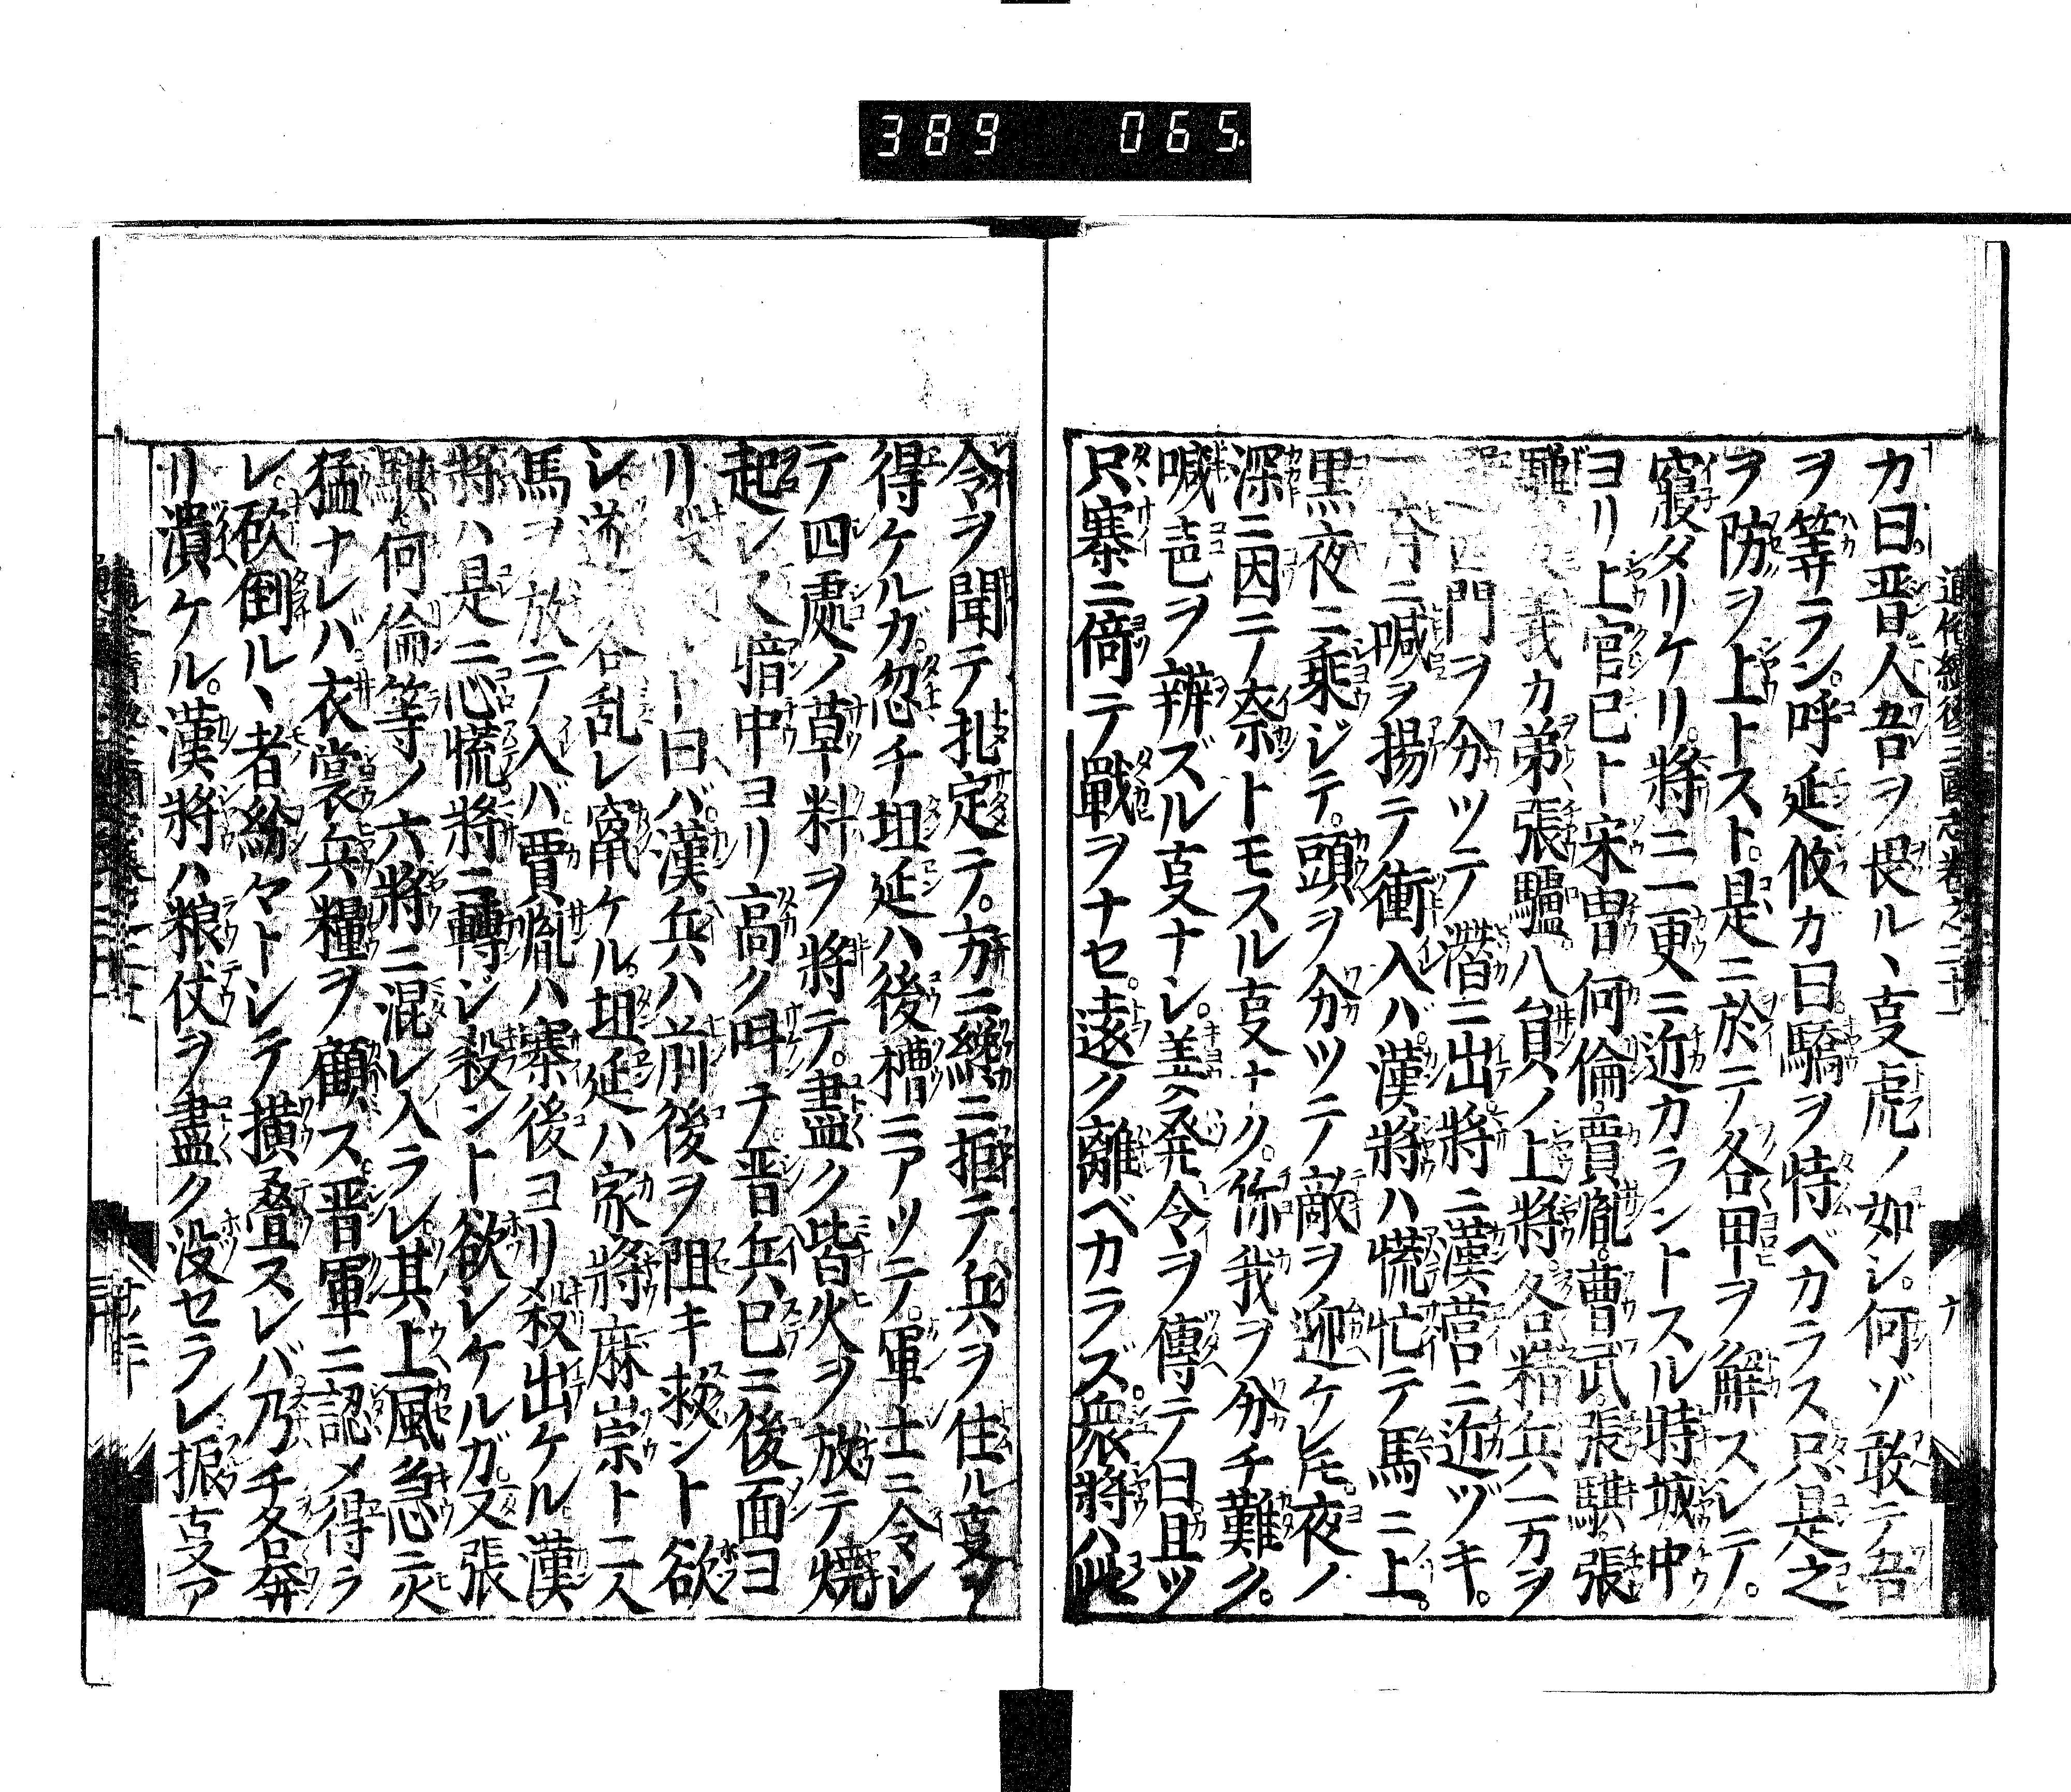 389 065
通俗續後三國志卷之二十一
六
カ曰。晋人吾ヲ畏ルヽ㕝虎ノ如シ。何ゾ敢テ吾
ヲ等サラン。呼延攸ガ曰驕ヲ恃ベカラス只是之
ヲ防ヲ上トスト。是ニ於テ各甲ヲ觧スレテ。
寢メリケリ。將ニ一更ニ近カラントスル時城中
ヨリ上官巳ト宋胄何倫。賈胤。曹武。張騏。張
我カ弟張驢。八貟ノ上將。各精兵一万ヲ
四門ヲ分ツテ潜ニ出將ニ漢営ニ近ヅキ。
一齊ニ喊ヲ揚テ衝入バ。漢將ハ慌忙テ馬ニ上。
黒夜ニ乗ジテ。頭ヲ分カツテ敵ヲ迎ケレ𪜈。夜ノ
深ニ因テ奈トモスル㕝ナク。你我ヲ分チ難ク。
喊声ヲ辨ズル㕝ナシ。姜発令ヲ傳テ曰。且ツ
只寨ニ倚テ戰ヲナセ。遠ク離ベカラズ。衆將ハ此
令ヲ聞テ扎定テ。方ニ纔ニ拒テ兵ヲ住ル㕝ヲ
得ケルガ。忽チ坦延ハ後槽ニアツテ。軍士ニ令シ
テ四處ノ草料ヲ將テ。盡ク皆火ヲ放テ燒
起シ又暗中ヨリ高ク呌テ。晋兵已ニ後面ヨ
リ
ト曰バ。漢兵ハ前後ヲ阻キ救ント欲
シ遂ニ各乱レ竄ケル。坦延ハ家將麻崇ト二人
馬ヲ放テ入バ賈胤ハ寨後ヨリ殺出ケル。漢
將ハ是ニ忩慌將ニ轉ジ殺ント欲シケルガ。又張
騏何倫等ノ六將ニ混レ入ラレ其上風急ニ火
猛ナレバ衣裳兵糧ヲ顧ス晋軍ニ認メ得ラ
レ。砍倒ルヽ者紛々トシテ横叠スレバ。乃チ各奔
リ潰ケル。漢將ハ粮仗ヲ盡ク没セラレ振㕝ア